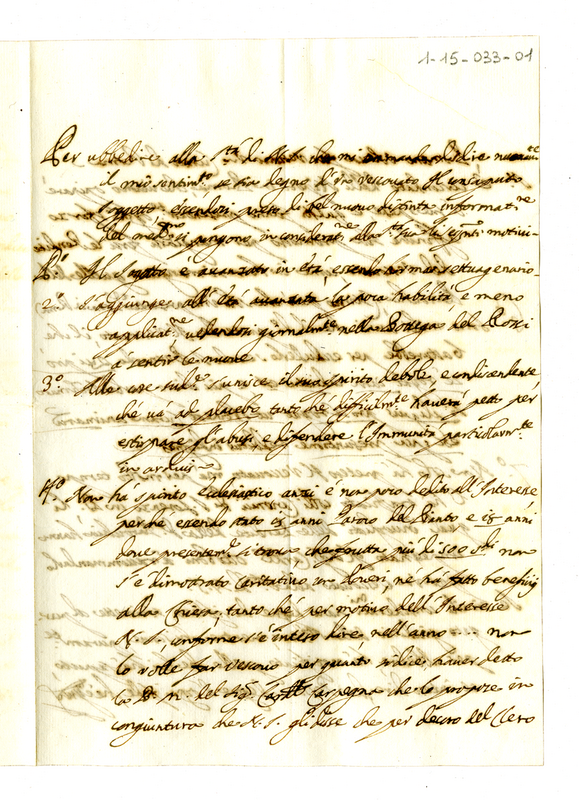 1-15-033-01
Per ubbedire alla S.tà di N.S. che mi comanda di dire nuovam.te
il mio sentim.to se sia degno d'un vescovato il consaputo
soggetto essendosi preso di nuovo distinta informat.ne
del si pongono in considerat.ne alla S.tà sua li seg.nti motivi
P.o Il Sogetto è avanzato in età, essendo ormai settuagenario
2.o S'aggiunge all'età avanzata la poca habilità e meno
applicat.ne vedendosi giornalm.te nella Bottega del Rossi
à sentir le nuove
3.o Alle cose sud.e s'unisce il suo spirito debole, e condiscendente
che và ad placebo tanto che difficilm.te haverà petto per
estirpare gl'abusi e difendere l'Immunità particolarm.te
in arduis
4.o Non hà spirito Eclesiastico anzi è non poco dedito all'Interesse
perche essendo stato anni Paroco del e 15 anni
dove presentem.te si trova, che frutta più di 500 s.di non
s'è dimostrato caritativo con Poveri, ne hà fatto benefizij
alla Chiesa, tanto che per motivo dell'Interesse
N. S., conforme s'è inteso dire nell'anno .... non
lo volle far Vescovo per quanto si dice haver detto
la del Sig. Card.le Carpegna che lo propose in
congiuntura che N. S. gli disse che per decoro del Clero